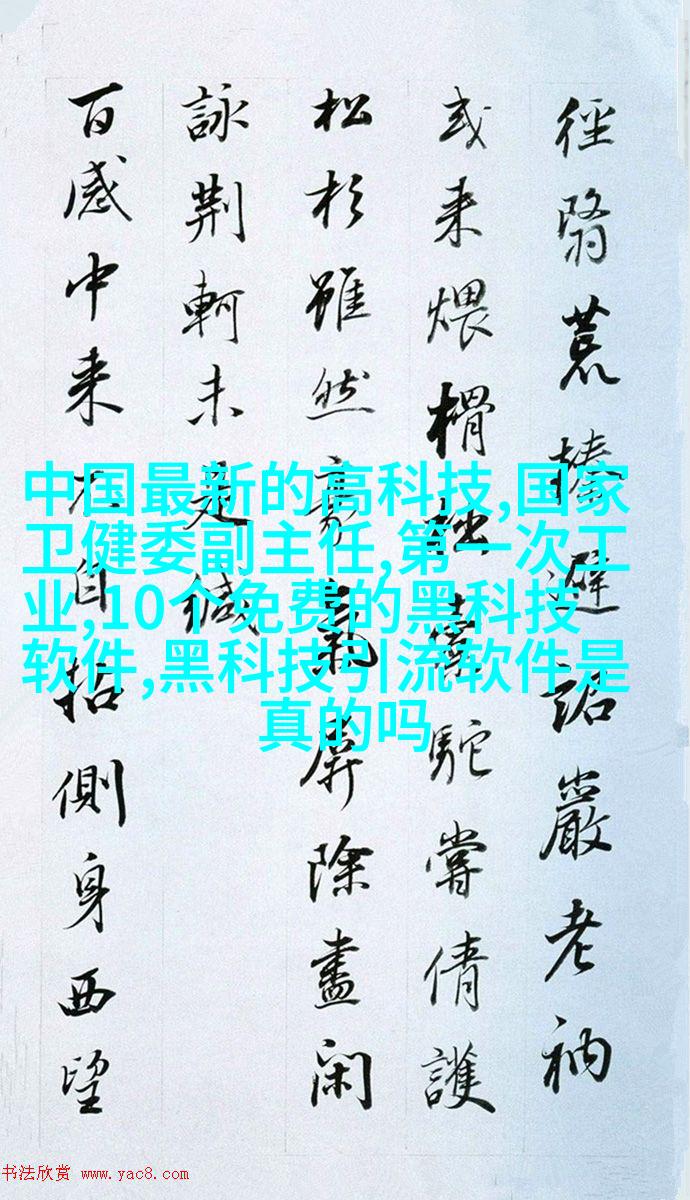 徑翳荒榛避詔嚴老衲
或来煨榾柮駝嘗倩護
松杉雖然豪氣屏除盡閑
詠荆軻未是緘
百感中来不自側身西望
中国最新的高科技,国家
卫健委副主任,第一次工
业,10个免费的黑科技
软件,黑科技引流软件是
真的吗
书法欣赏 www.yac8.com